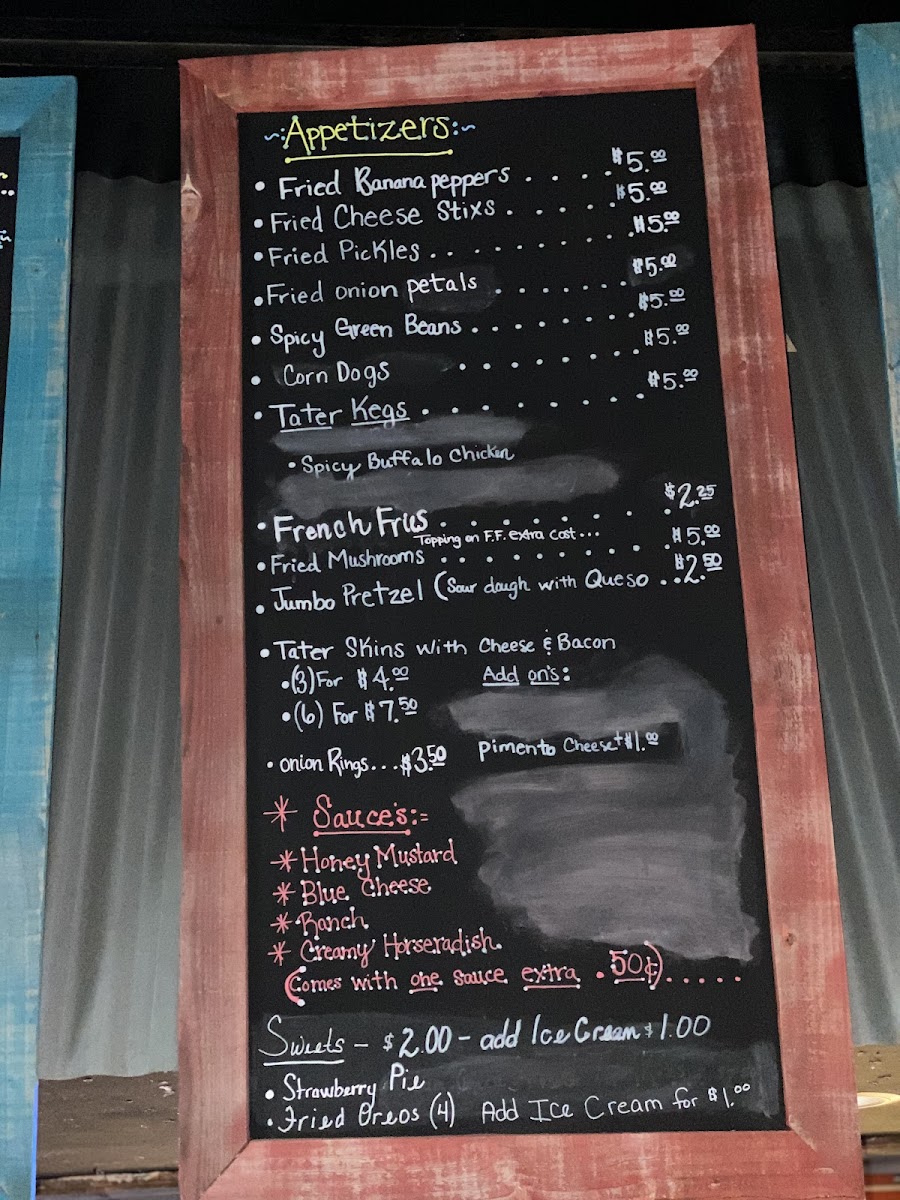 ~:Appetizers:~
• Fried Banana peppers . . . . . $5.00
• Fried Cheese Stixs . . . . . . $5.00
• Fried Pickles . . . . . . . . . $5.00
• Fried onion petals . . . . . . . $5.00
• Spicy Green Beans . . . . . . . . $5.00
• Corn Dogs . . . . . . . . $5.00
• Tater Kegs . . . . . . . . $5.00
• Spicy Buffalo Chicken
• French Fries . . . . . . . . $2.25
Topping on F.F. extra cost...
• Fried Mushrooms . . . . . . . . . $5.00
• Jumbo Pretzel (Sour daugh with Queso . . . $2.50
• Tater Skins with Cheese & Bacon
• (3) For $4.00 Add on's:
• (6) For $7.50
pimento Cheese +$1.00
• onion Rings...$3.50
* Sauce's:=
* Honey Mustard
* Blue Cheese
* Ranch
* Creamy Horseradish.
(Comes with one sauce extra .50¢) . . . . .
Sweets – $2.00 – add Ice Cream $1.00
• Strawberry Pie
• Fried Oreos (4) Add Ice Cream for $1.00